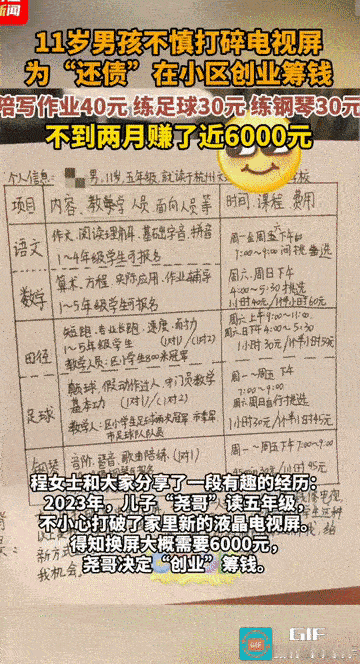 新闻
11岁男孩不慎打碎电视屏
为“还债”在小区创业筹钱
陪写作业40元 练足球30元 练钢琴30元
不到两月赚了近6000元
个人信息:
男,11岁,五年级,就读于杭州
项目 内容、教学人员、面向人员等 时间、课程 费用
语文 作文、阅读理解、基础字音、拼音
1~4年级学生可报名
周一至周五下午
7:00~9:00 问挑自选
数学 算术、方程、实际应用、作业辅导
1~5年级学生可报名
周六、周日下午
4:00~5:30 挑选
1小时40元/1半小时60元
田径 短跑、专业长跑、速度、耐力
1~5年级学生 (1对1)/(1对2)
教学人员:区小学生800米冠军
周六上午9:00~11:00
周六日下午4:00~5:30
1小时30元/1半小时50元
足球 颠球、假动作过人、守门员教学
基本功 (1对1)/(1对2)
周一~周五下午
7:00~9:00
1小时30元/1半小时45元
钢琴 音阶、琶音、歌曲陪练(1对1)
周一~周五下午7:00~9:00
程女士和大家分享了一段有趣的经历:
2023年,儿子“尧哥”读五年级,
不小心打破了家里新的液晶电视屏。
得知换屏大概需要6000元,
尧哥决定“创业”筹钱。
新方式
我机会。
GIF